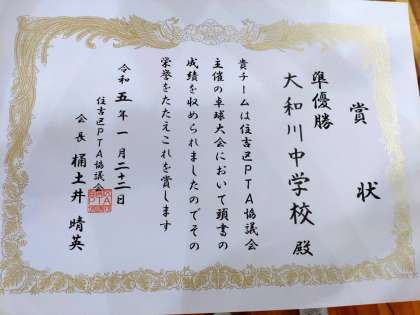 賞状
準優勝
大和川中学校 殿
貴チームは住吉区PTA協議会
主催の卓球大会において頭書の
成績を収められましたのでその
栄誉をたたえこれを賞します
令和五年一月二十二日
住吉区PTA協議会
会長 桶土井 晴英